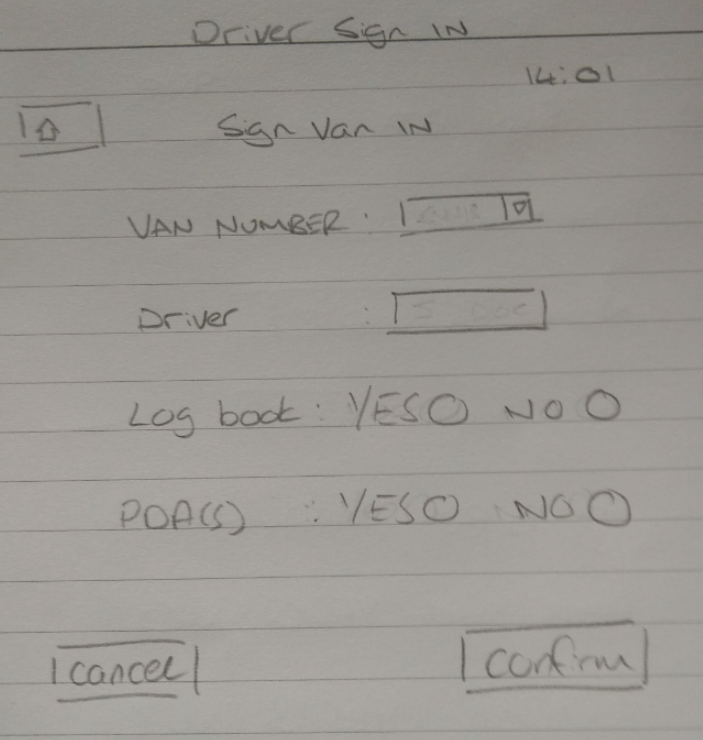 Driver Sign IN
14:01
Sign Van IN
VAN NUMBER:
Driver :
Log book: YES NO
PDA(S) : YES NO
cancel confirm